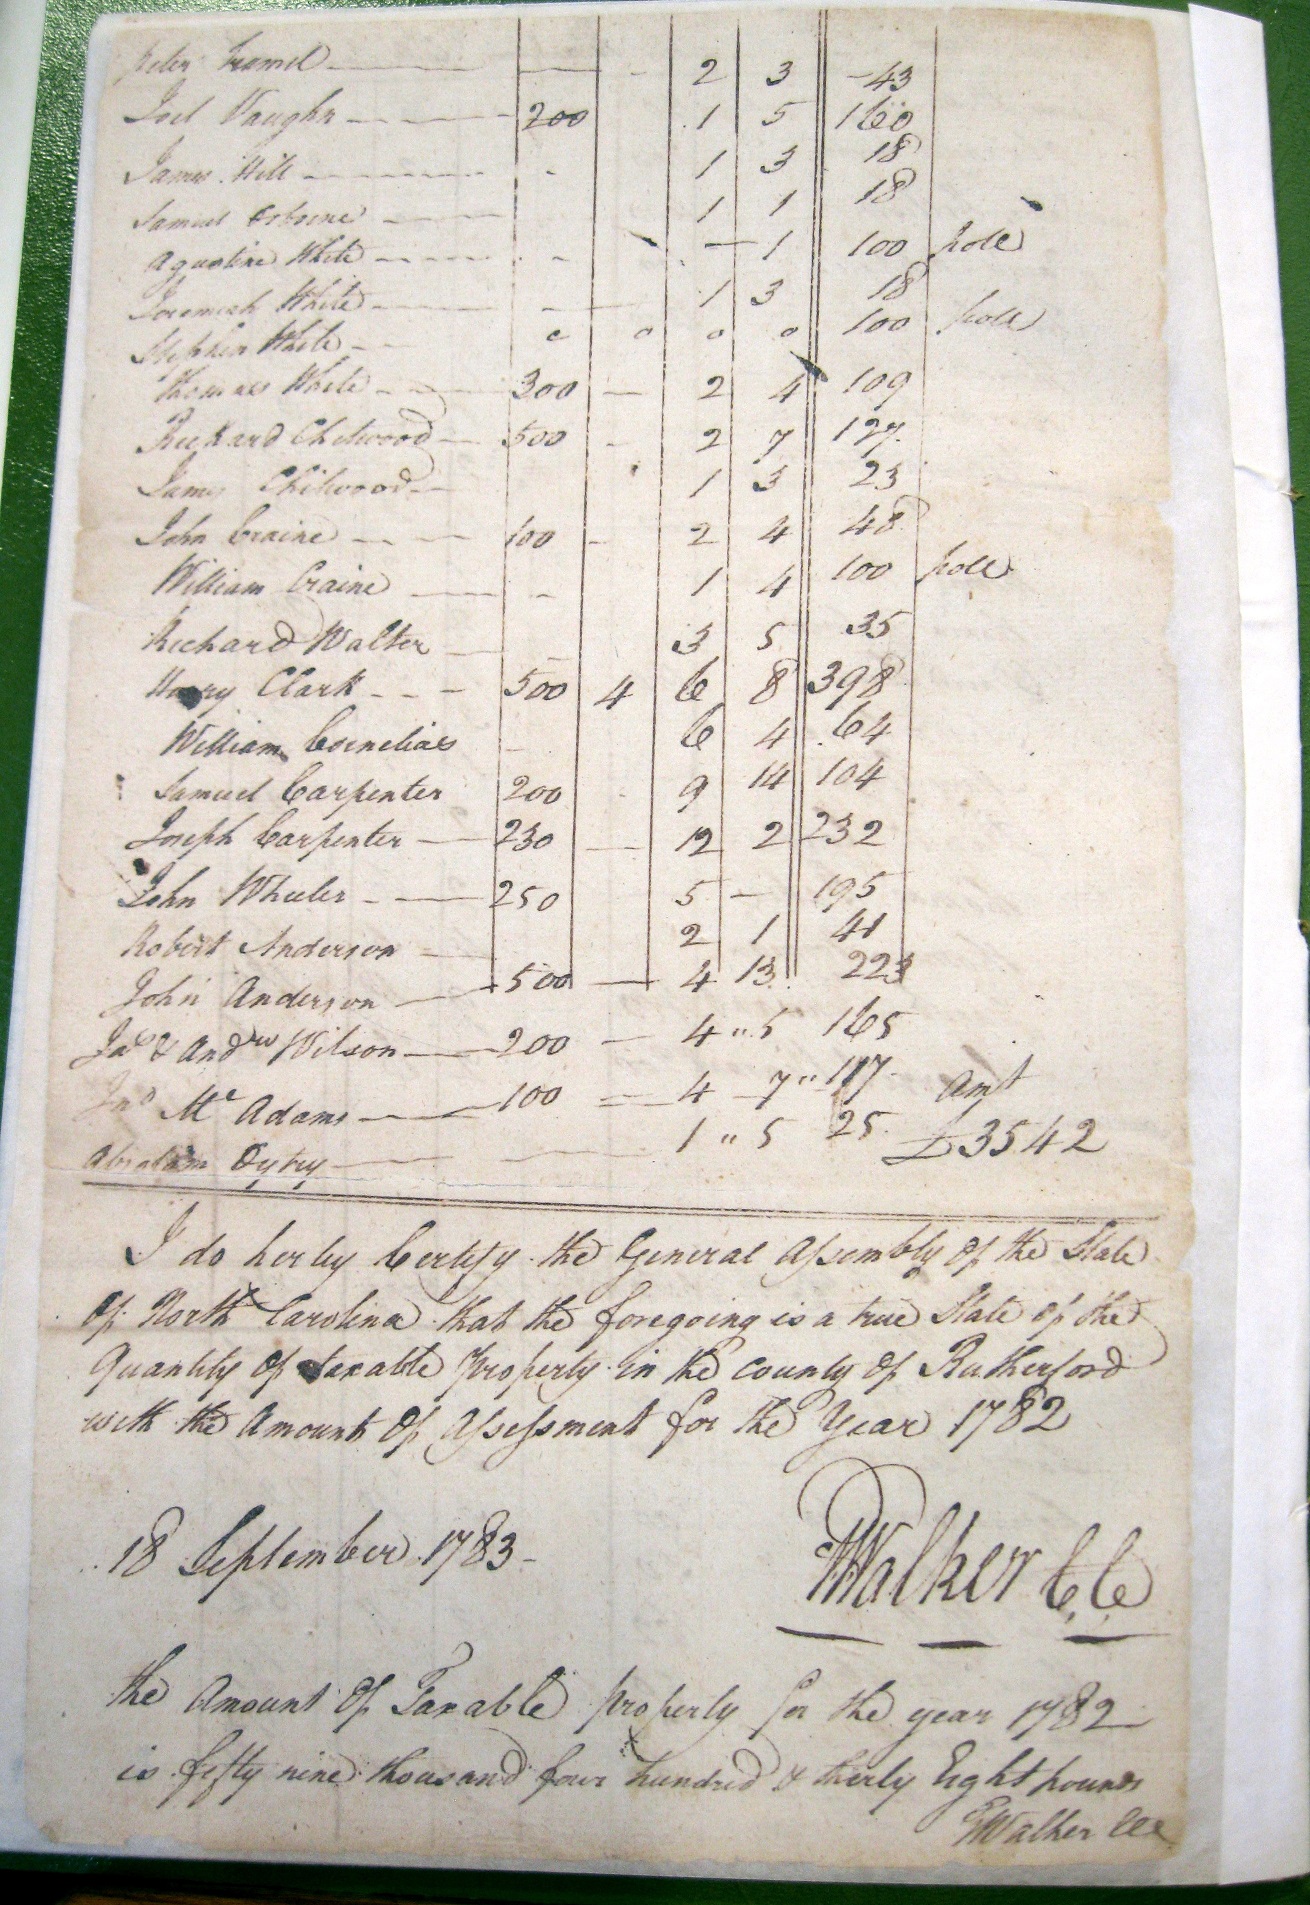 Peter Tramel — — - 2 3 - 43
Joel Vaughn - - - - 200 1 5 160
James Hill - - - - - 1 3 18
Samuel Osborne - - - 1 1 18
Agustine White - - - - - — 1 100 pole
Jeremiah White - - - 1 3 18
Stephen White - - 0 0 0 0 100 pole
Thomas White - - - 300 — 2 4 109
Richard Chitwood — 500 - 2 7 127
James Chitwood - 1 3 23
John Craine - - - 100 - 2 4 48
William Craine — - - 1 4 100 pole
Richard Walter — 3 5 35
Clark - - - 500 4 6 8 398
William Cornelias - 6 4 64
Samuel Carpenter 200 - 9 14 104
Joseph Carpenter — 230 — 12 2 232
John Wheeler - — 250 5 — 195
Robert Anderson — 2 1 41
John Anderson — 500 — 4 13 223
Jno & Andrw Wilson — 200 — 4 " 5 165
Jno Mc Adams — 100 = — 4 7 " 117 Amt
Abraham — 1 " 5 25 £3542
I do herby Certify the General Assembly Of the State
Of North Carolina that the foregoing is a true State Of the
Quantity Of taxable property in the County Of Rutherford
with the Amount Of Assessment for the Year 1782
18 September 1783 -
Walker C.C.
the Amount Of Taxable property for the year 1782
is fifty nine thousand four hundred & thirty Eight pounds
Walker CCC